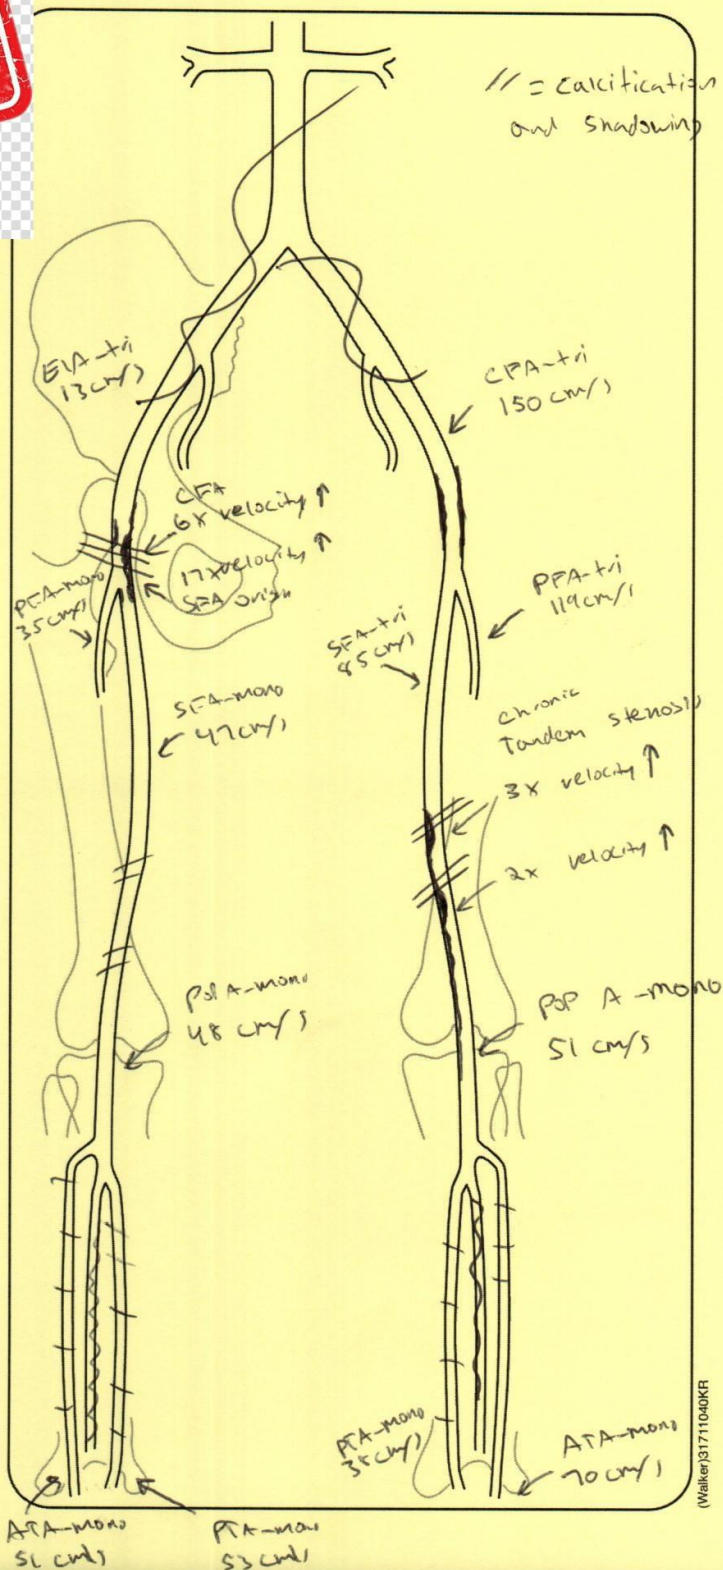 // = calcification
and shadowing
EIA-tri
13 cm/s
CFA-tri
150 cm/s
CFA
6x velocity ↑
17x velocity ↑
SFA origin
PFA-mono
35 cm/s
PFA-tri
119 cm/s
SFA-tri
85 cm/s
SFA-mono
47 cm/s
chronic
Tandem stenosis
3x velocity ↑
2x velocity ↑
POP A-mono
48 cm/s
POP A-mono
51 cm/s
PTA-mono
38 cm/s
ATA-mono
70 cm/s
ATA-mono
51 cm/s
PTA-mono
53 cm/s
(Walker)31711040KR